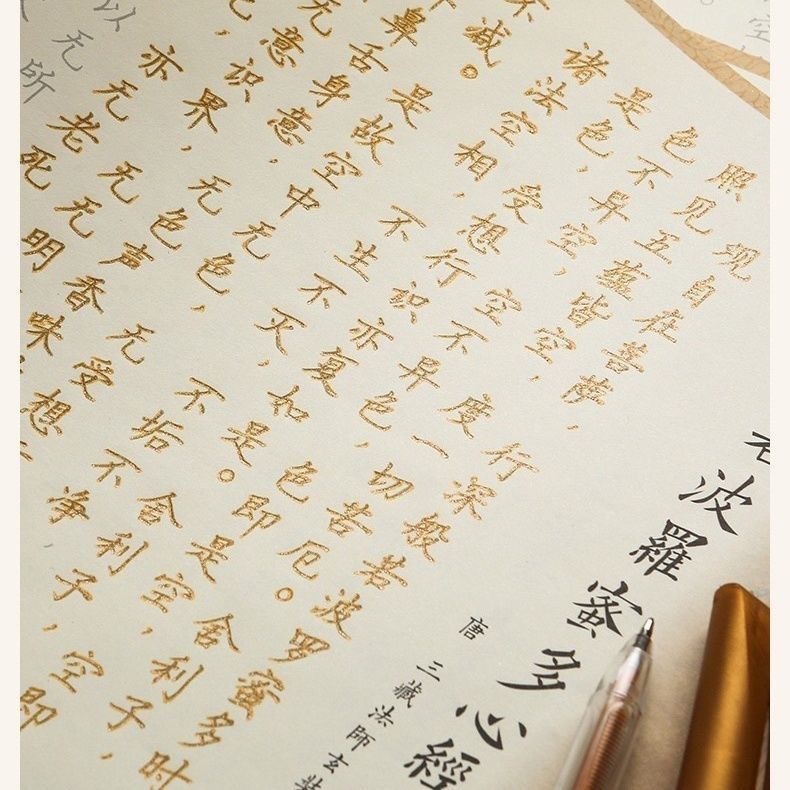 波羅蜜多心經
唐 三藏法師玄奘
观自在菩萨，行深般若波罗蜜多时
照见五蕴皆空，度一切苦厄。舍利子，
色不异空，空不异色，色即是空，空即
是色，受想行识亦复如是。舍利子，
诸法空相，不生不灭，不垢不净，
不减。是故空中无色，无受想
鼻舌身意，无色声香味
无意识界，无无明
亦无老死
以无所